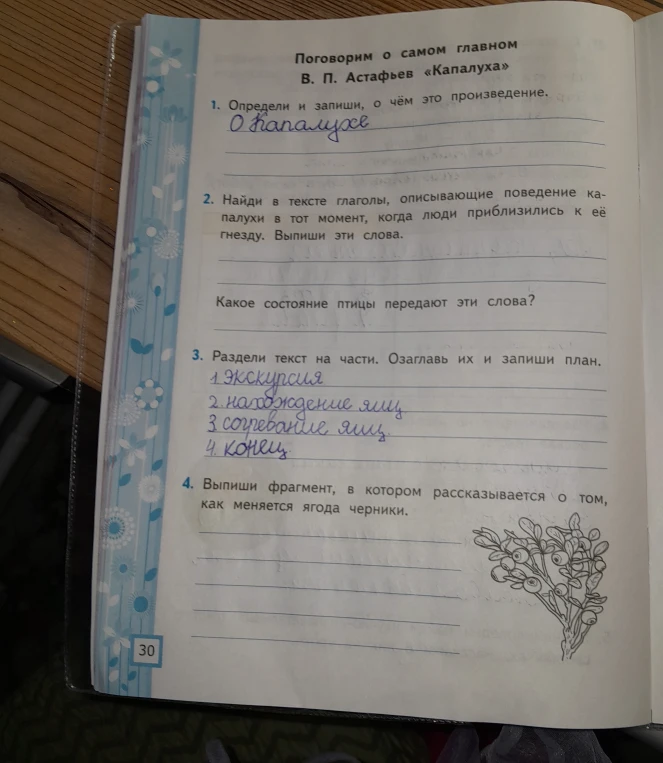 Поговорим о самом главном
В. П. Астафьев «Капалуха»
1. Определи и запиши, о чём это произведение.
О Капалухе
2. Найди в тексте глаголы, описывающие поведение ка-
палухи в тот момент, когда люди приблизились к её
гнезду. Выпиши эти слова.
Какое состояние птицы передают эти слова?
3. Раздели текст на части. Озаглавь их и запиши план.
1 экскурсия
2. нахождение яиц
3 согревание яиц.
4. конец
4. Выпиши фрагмент, в котором рассказывается о том,
как меняется ягода черники.
30